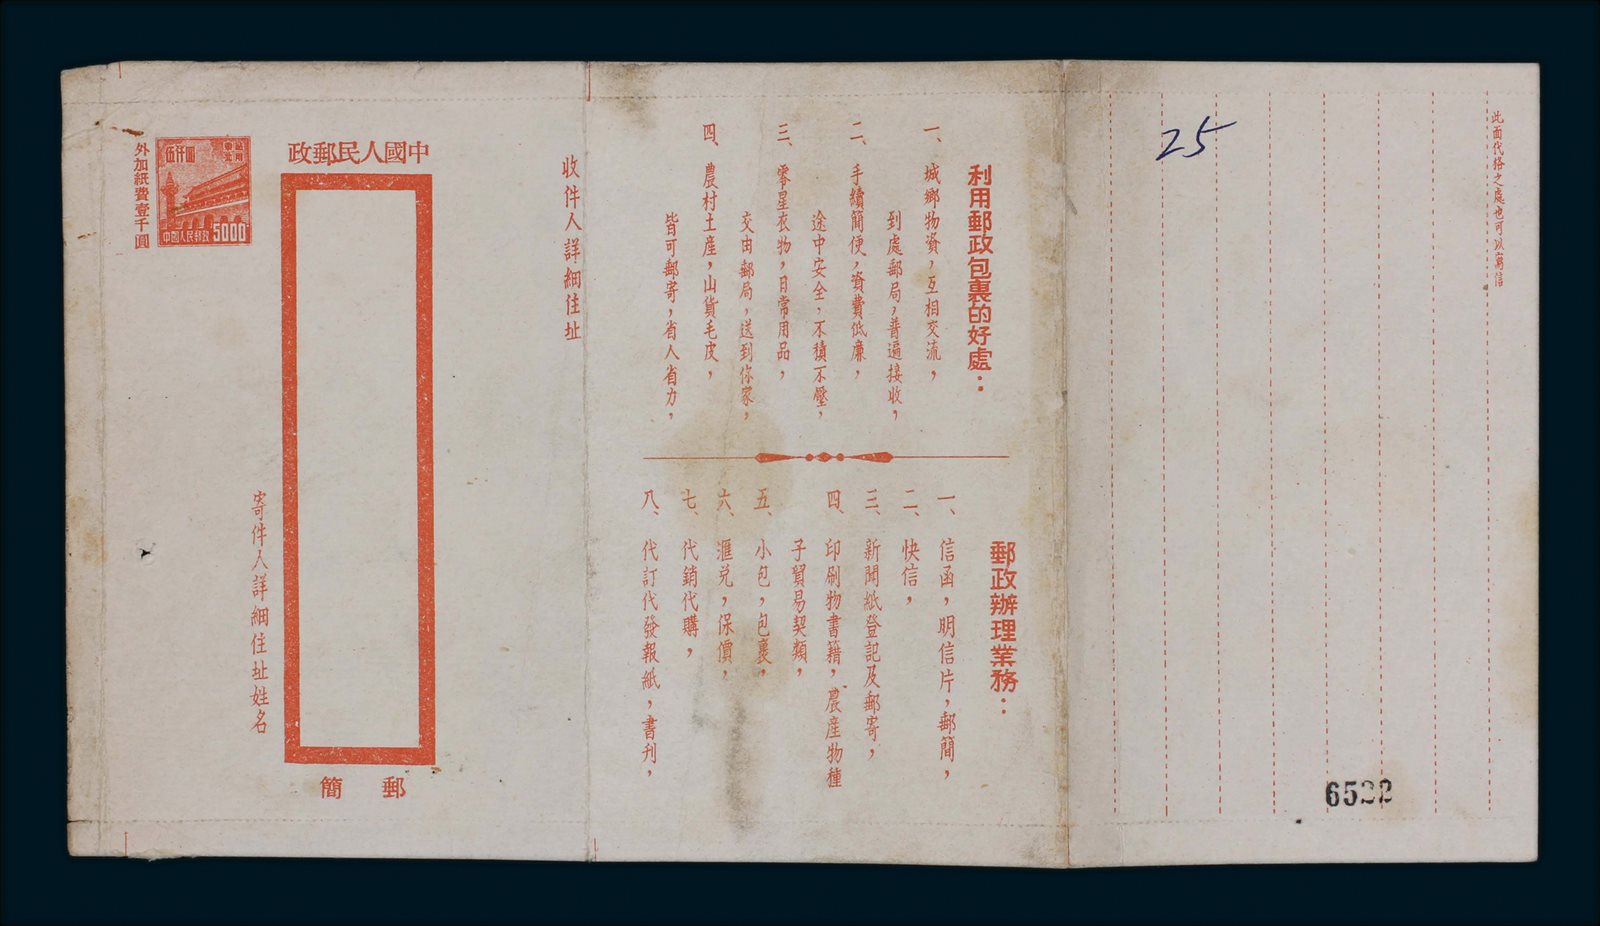 中國人民郵政
伍仟圓
東北貼用
中國人民郵政
5000
外加紙費壹千圓
收件人詳細住址
寄件人詳細住址姓名
郵簡
利用郵政包裹的好處：
一、城鄉物資，互相交流，
到處郵局，普遍接收，
二、手續簡便，資費低廉，
途中安全，不積不壓，
三、零星衣物，日常用品，
交由郵局，送到你家，
四、農村土產，山貨毛皮，
皆可郵寄，省人省力，
郵政辦理業務：
一、信函，明信片，郵簡，
二、快信，
三、新聞紙登記及郵寄，
四、印刷物書籍，農產物種
子貿易契類，
五、小包，包裹，
六、滙兑，保價，
七、代銷代購，
八、代訂代發報紙，書刊，
此面代格之處也可以寫信
25
6522